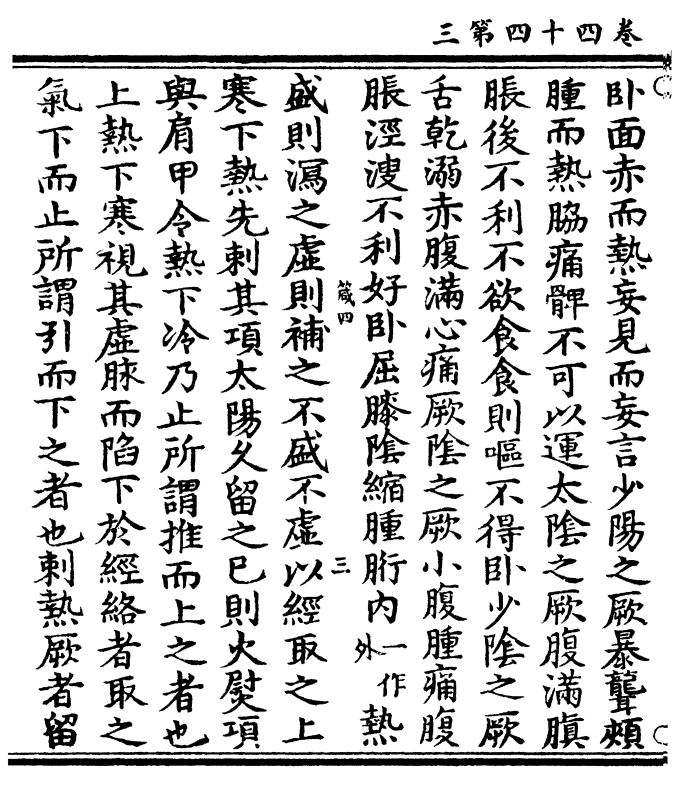 卷四十四第三
卧面赤而熱妄見而妄言少陽之厥暴聾頰
腫而熱脇痛髀不可以運太陰之厥腹滿䐜
脹後不利不欲食食則嘔不得卧少陰之厥
舌乾溺赤腹滿心痛厥陰之厥小腹腫痛腹
脹涇溲不利好卧屈膝陰縮腫胻内一作外熱
箴四
三
盛則瀉之虛則補之不盛不虛以經取之上
寒下熱先刺其項太陽久留之巳則火熨項
與肩甲令熱下冷乃止所謂推而上之者也
上熱下寒視其虛脉而陷下於經絡者取之
氣下而止所謂引而下之者也刺熱厥者留